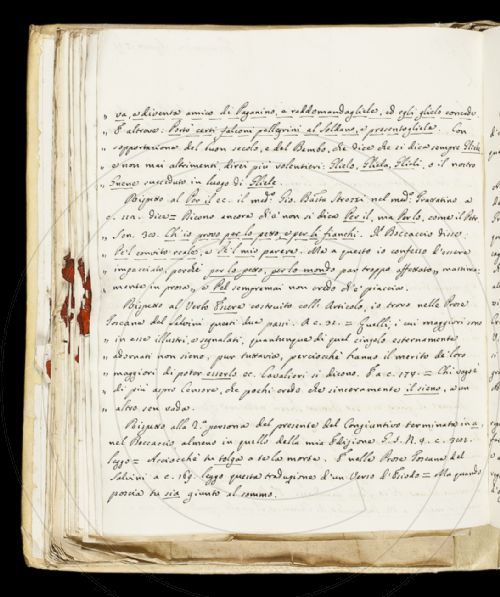 „ va, e diventa amico di Paganino, e raddomandagliele, ed egli gliele concede
„ E altrove: Portò certi falconi pellegrini al Soldano, e presentogliele. Con
„ sopportazione del buon secolo, e del Bembo, che dice che si dice sempre Gliele
„ e non mai altrimenti, direi più volentieri: Glielo, Gliela, Glieli, o il nostro
„ succeduto in luogo di Gliele.
Rispetto al Per il ec. il med.º Gio. Batta Strozzi nel med.º
a c. dice = Dicono ancora ch'e' non si dica Per il, ma Perlo, come il Petr.
„ Son. 30. Ch'io provo per lo petto, e per li fianchi. Il Boccaccio disse:
„ Pe'l convito reale, e Pe'l mio parere. Ma a questo io confesso d'essere
„ impacciato, perchè per lo petto, per lo mondo par troppo affettato,
„ mente in prosa, e Pel sempremai non credo ch'e' piaccia.
Rispetto al Verbo Essere costruito colli Articolo, io trovo nelle Prose
Toscane del Salvini questi due passi. A c. 91. = Quelli, i cui maggiori sono
„ in esse illustri, e segnalati, quantunque di quel cingolo esternamente
„ adornati non sieno, pur tuttavia, perciocchè hanno il merito de' loro
„ maggiori di poter esserlo ec. Cavalieri si dicono. E a c. 174. = Chi
„ di più aspro Censore, che pochi credo che sinceramente il sieno, e un
„ altro sen vada.
Rispetto alla 2.ª persona del presente del Congiuntivo terminata in a,
nel Boccaccio almeno in quello della mia Edizione G. 5. N. 9. c.
leggo = Acciocchè tu tolga a te la morte. E nelle Prose Toscane del
Salvini a c. 169. leggo questa traduzione d'un Verso d'Esiodo = Ma quando
poscia tu sia giunto al sommo.